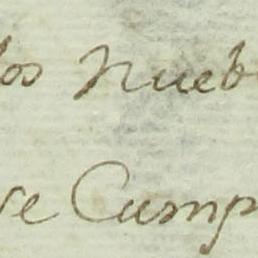 los Nueb
se Cump